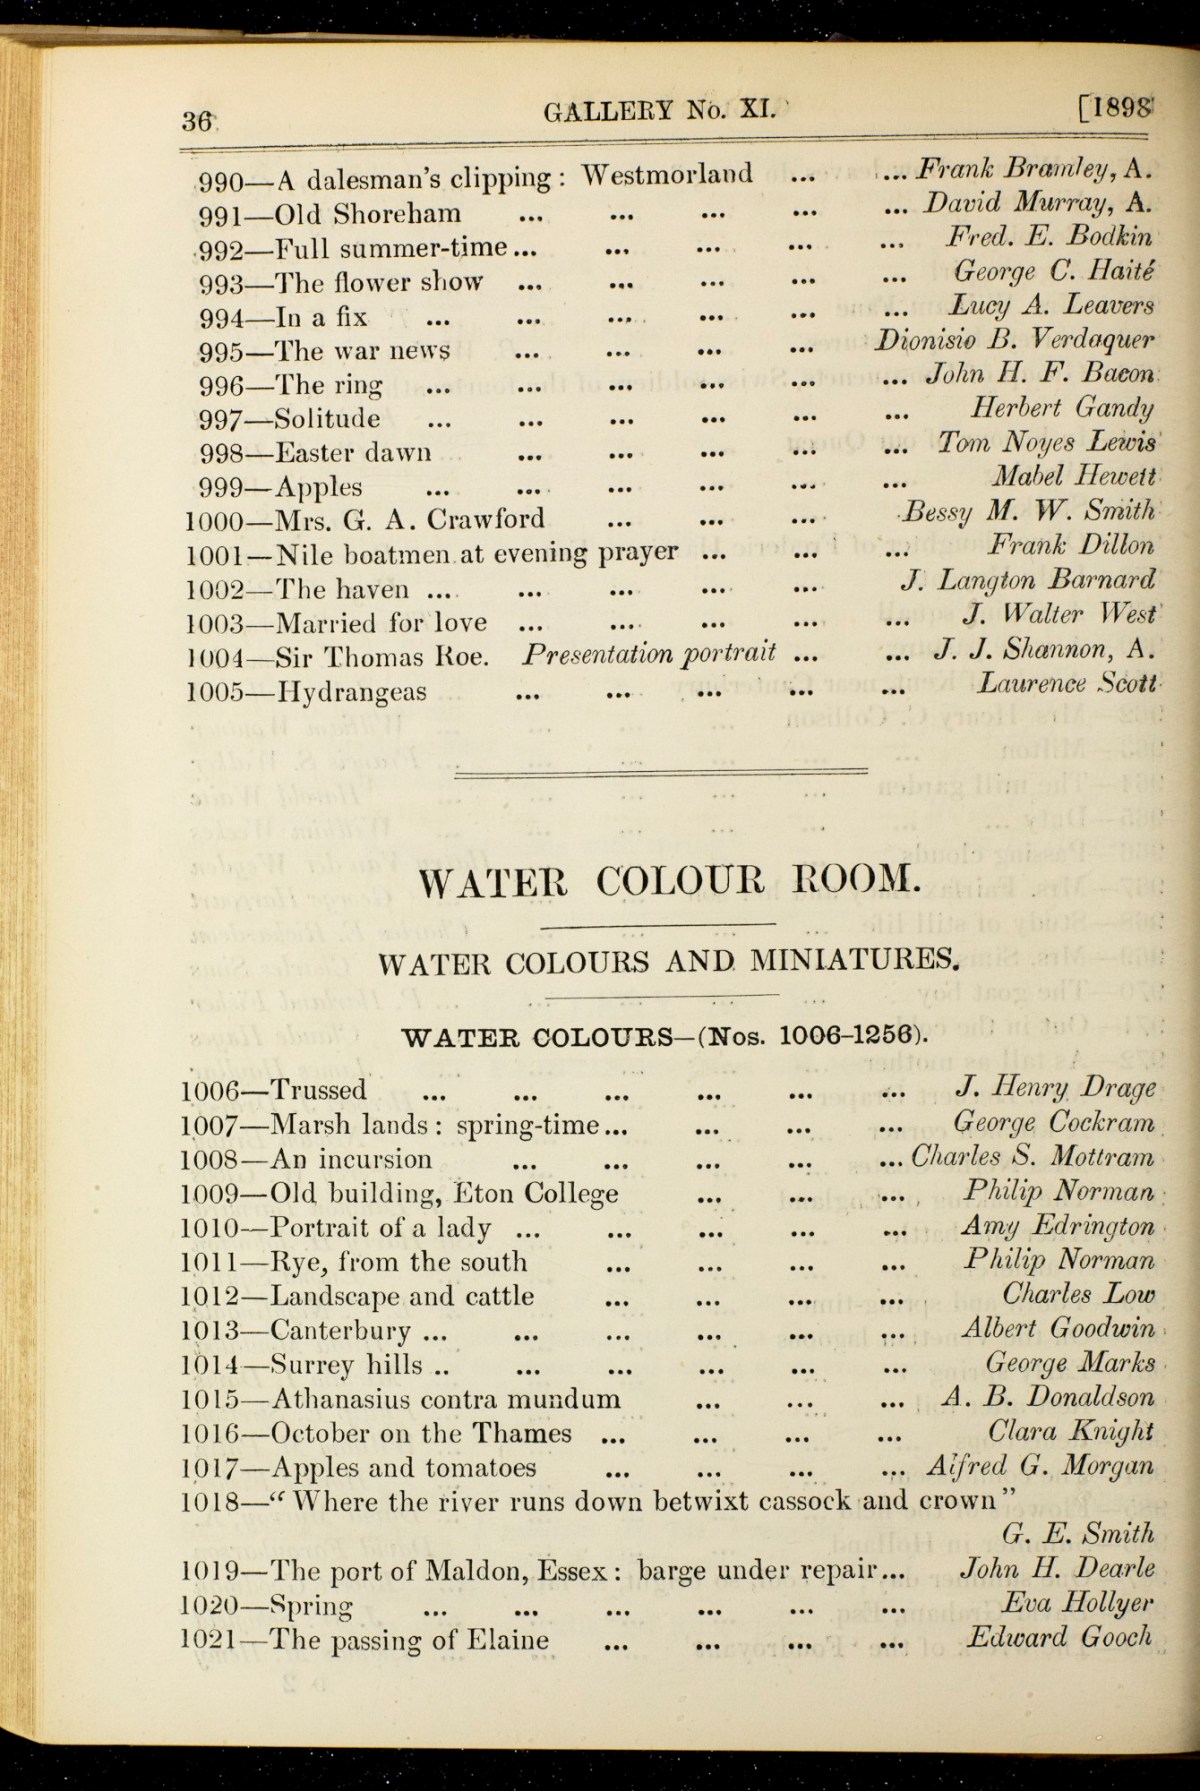 36 GALLERY No. XI. [1898
990—A dalesman's clipping: Westmorland ... ... Frank Bramley, A.
991—Old Shoreham ... ... ... ... ... David Murray, A.
992—Full summer-time... ... ... ... ... Fred. E. Bodkin
993—The flower show ... ... ... ... ... George C. Haité
994—In a fix ... ... ... ... ... ... Lucy A. Leavers
995—The war news ... ... ... ... Dionisio B. Verdaguer
996—The ring ... ... ... ... ... ... John H. F. Bacon
997—Solitude ... ... ... ... ... ... Herbert Gandy
998—Easter dawn ... ... ... ... ... Tom Noyes Lewis
999—Apples ... ... ... ... ... ... Mabel Hewett
1000—Mrs. G. A. Crawford ... ... ... Bessy M. W. Smith
1001—Nile boatmen at evening prayer ... ... ... Frank Dillon
1002—The haven ... ... ... ... ... J. Langton Barnard
1003—Married for love ... ... ... ... ... J. Walter West
1004—Sir Thomas Roe. Presentation portrait ... ... J. J. Shannon, A.
1005—Hydrangeas ... ... ... ... ... Laurence Scott
WATER COLOUR ROOM.
WATER COLOURS AND MINIATURES.
WATER COLOURS—(Nos. 1006–1256).
1006—Trussed ... ... ... ... ... ... J. Henry Drage
1007—Marsh lands: spring-time... ... ... ... George Cockram
1008—An incursion ... ... ... ... ... Charles S. Mottram
1009—Old building, Eton College ... ... ... Philip Norman
1010—Portrait of a lady ... ... ... ... ... Amy Edrington
1011—Rye, from the south ... ... ... ... Philip Norman
1012—Landscape and cattle ... ... ... ... Charles Low
1013—Canterbury ... ... ... ... ... ... Albert Goodwin
1014—Surrey hills .. ... ... ... ... ... George Marks
1015—Athanasius contra mundum ... ... ... A. B. Donaldson
1016—October on the Thames ... ... ... ... Clara Knight
1017—Apples and tomatoes ... ... ... ... Alfred G. Morgan
1018—“Where the river runs down betwixt cassock and crown”
G. E. Smith
1019—The port of Maldon, Essex: barge under repair... John H. Dearle
1020—Spring ... ... ... ... ... ... Eva Hollyer
1021—The passing of Elaine ... ... ... ... Edward Gooch